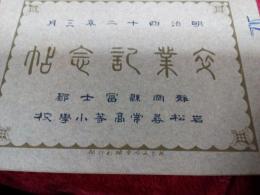 明治四十二年三月
卒業記念帖
靜岡縣富士郡
岩松尋常高等小學校